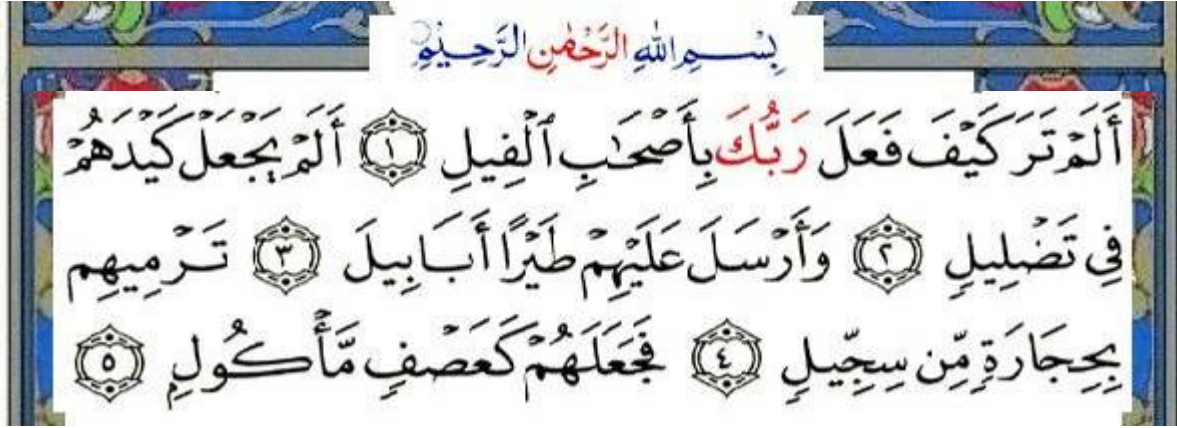 بِسْمِ اللهِ الرَّحْمٰنِ الرَّحِيْمِ
أَلَمْ تَرَ كَيْفَ فَعَلَ رَبُّكَ بِأَصْحَٰبِ ٱلْفِيلِ ١ أَلَمْ يَجْعَلْ كَيْدَهُمْ
فِي تَضْلِيلٍ ٢ وَأَرْسَلَ عَلَيْهِمْ طَيْرًا أَبَابِيلَ ٣ تَرْمِيهِم
بِحِجَارَةٍ مِّن سِجِّيلٍ ٤ فَجَعَلَهُمْ كَعَصْفٍ مَّأْكُولٍ ٥